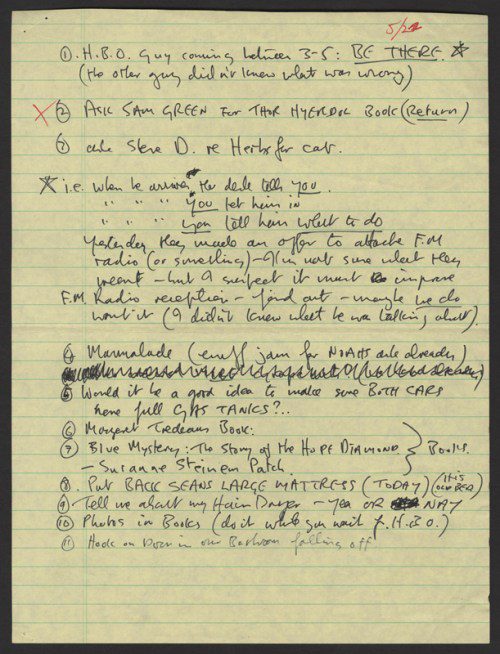 5/22
① H.B.O. Guy coming between 3-5: BE THERE. ☆
(the other guy didn't know what was wrong)
X ② ASK SAM GREEN FOR THOR HYERDOL BOOK (Return)
③ ask Steve D. re Herbs for cats.
☆ i.e. when he arrives the desk tells you.
" " " " you let him in
" " " " you tell him what to do
Yesterday they made an offer to attache F.M
radio (or something) – I'm not sure what they
meant – but I suspect it must improve
F.M Radio reception – find out – maybe we do
want it (I didn't know what he was talking about).
④ Marmalade (enuff jam for NOAHS ark already)
⑤ Would it be a good idea to make sure BOTH CARS
have full GAS TANKS?..
⑥ Margaret Trudeaus Book:
⑦ Blue Mystery: The Story of the HOPE DIAMOND } Books.
– Suzanne Steinem Patch.
⑧ Put BACK SEANS LARGE MATTRESS (TODAY) (it's OLDER)
⑨ Tell me about my Hair Dryer – YEA OR NAY
⑩ Photos in Books (do it while you wait f. H.B.O.)
⑪ Hook on Door in our Bathroom falling off